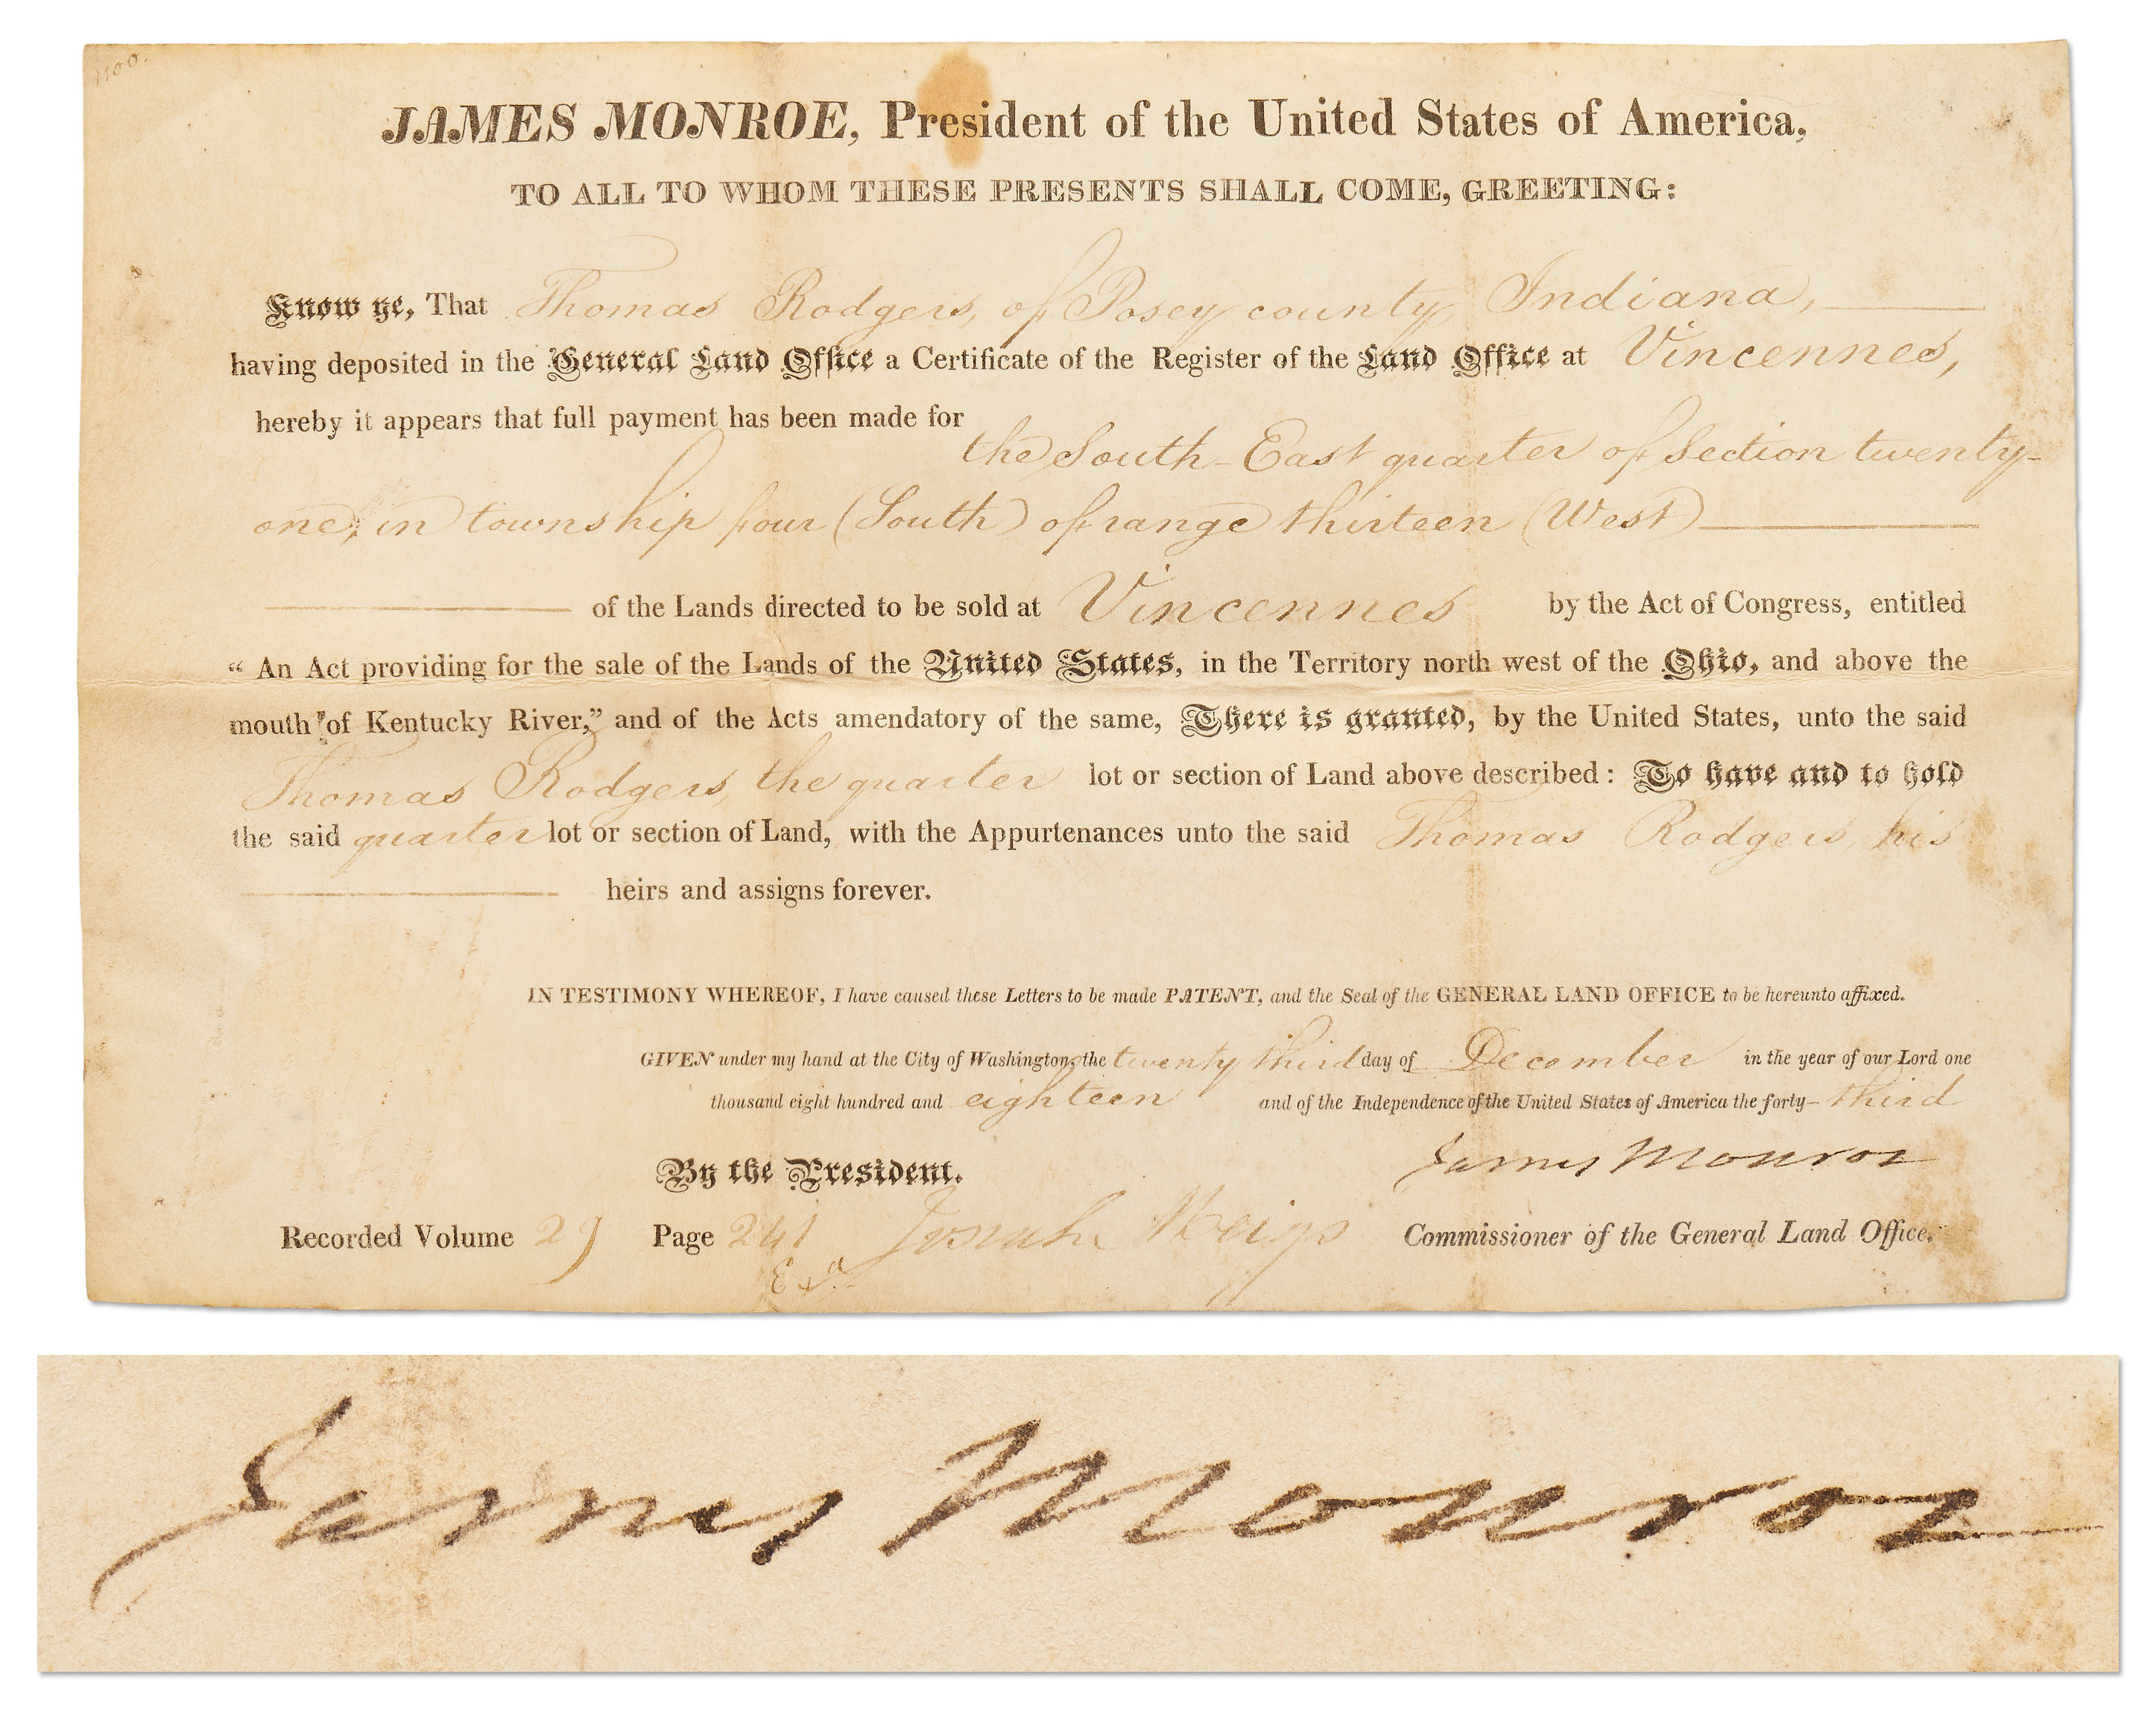 1100.
JAMES MONROE, President of the United States of America,
TO ALL TO WHOM THESE PRESENTS SHALL COME, GREETING:
Know ye, That Thomas Rodgers, of Posey county Indiana,
having deposited in the General Land Office a Certificate of the Register of the Land Office at Vincennes,
hereby it appears that full payment has been made for
the South-East quarter of Section twenty-
one, in township four (South) of range thirteen (West)
of the Lands directed to be sold at Vincennes by the Act of Congress, entitled
“ An Act providing for the sale of the Lands of the United States, in the Territory north west of the Ohio, and above the
mouth of Kentucky River,” and of the Acts amendatory of the same, There is granted, by the United States, unto the said
Thomas Rodgers, the quarter lot or section of Land above described: To have and to hold
the said quarter lot or section of Land, with the Appurtenances unto the said Thomas Rodgers, his
heirs and assigns forever.
IN TESTIMONY WHEREOF, I have caused these Letters to be made PATENT, and the Seal of the GENERAL LAND OFFICE to be hereunto affixed.
GIVEN under my hand at the City of Washington, the twenty third day of December in the year of our Lord one
thousand eight hundred and eighteen and of the Independence of the United States of America the forty-third
James Monroe
By the President.
Recorded Volume 29 Page 241 Josiah Meigs Commissioner of the General Land Office.
Exd.
James Monroe